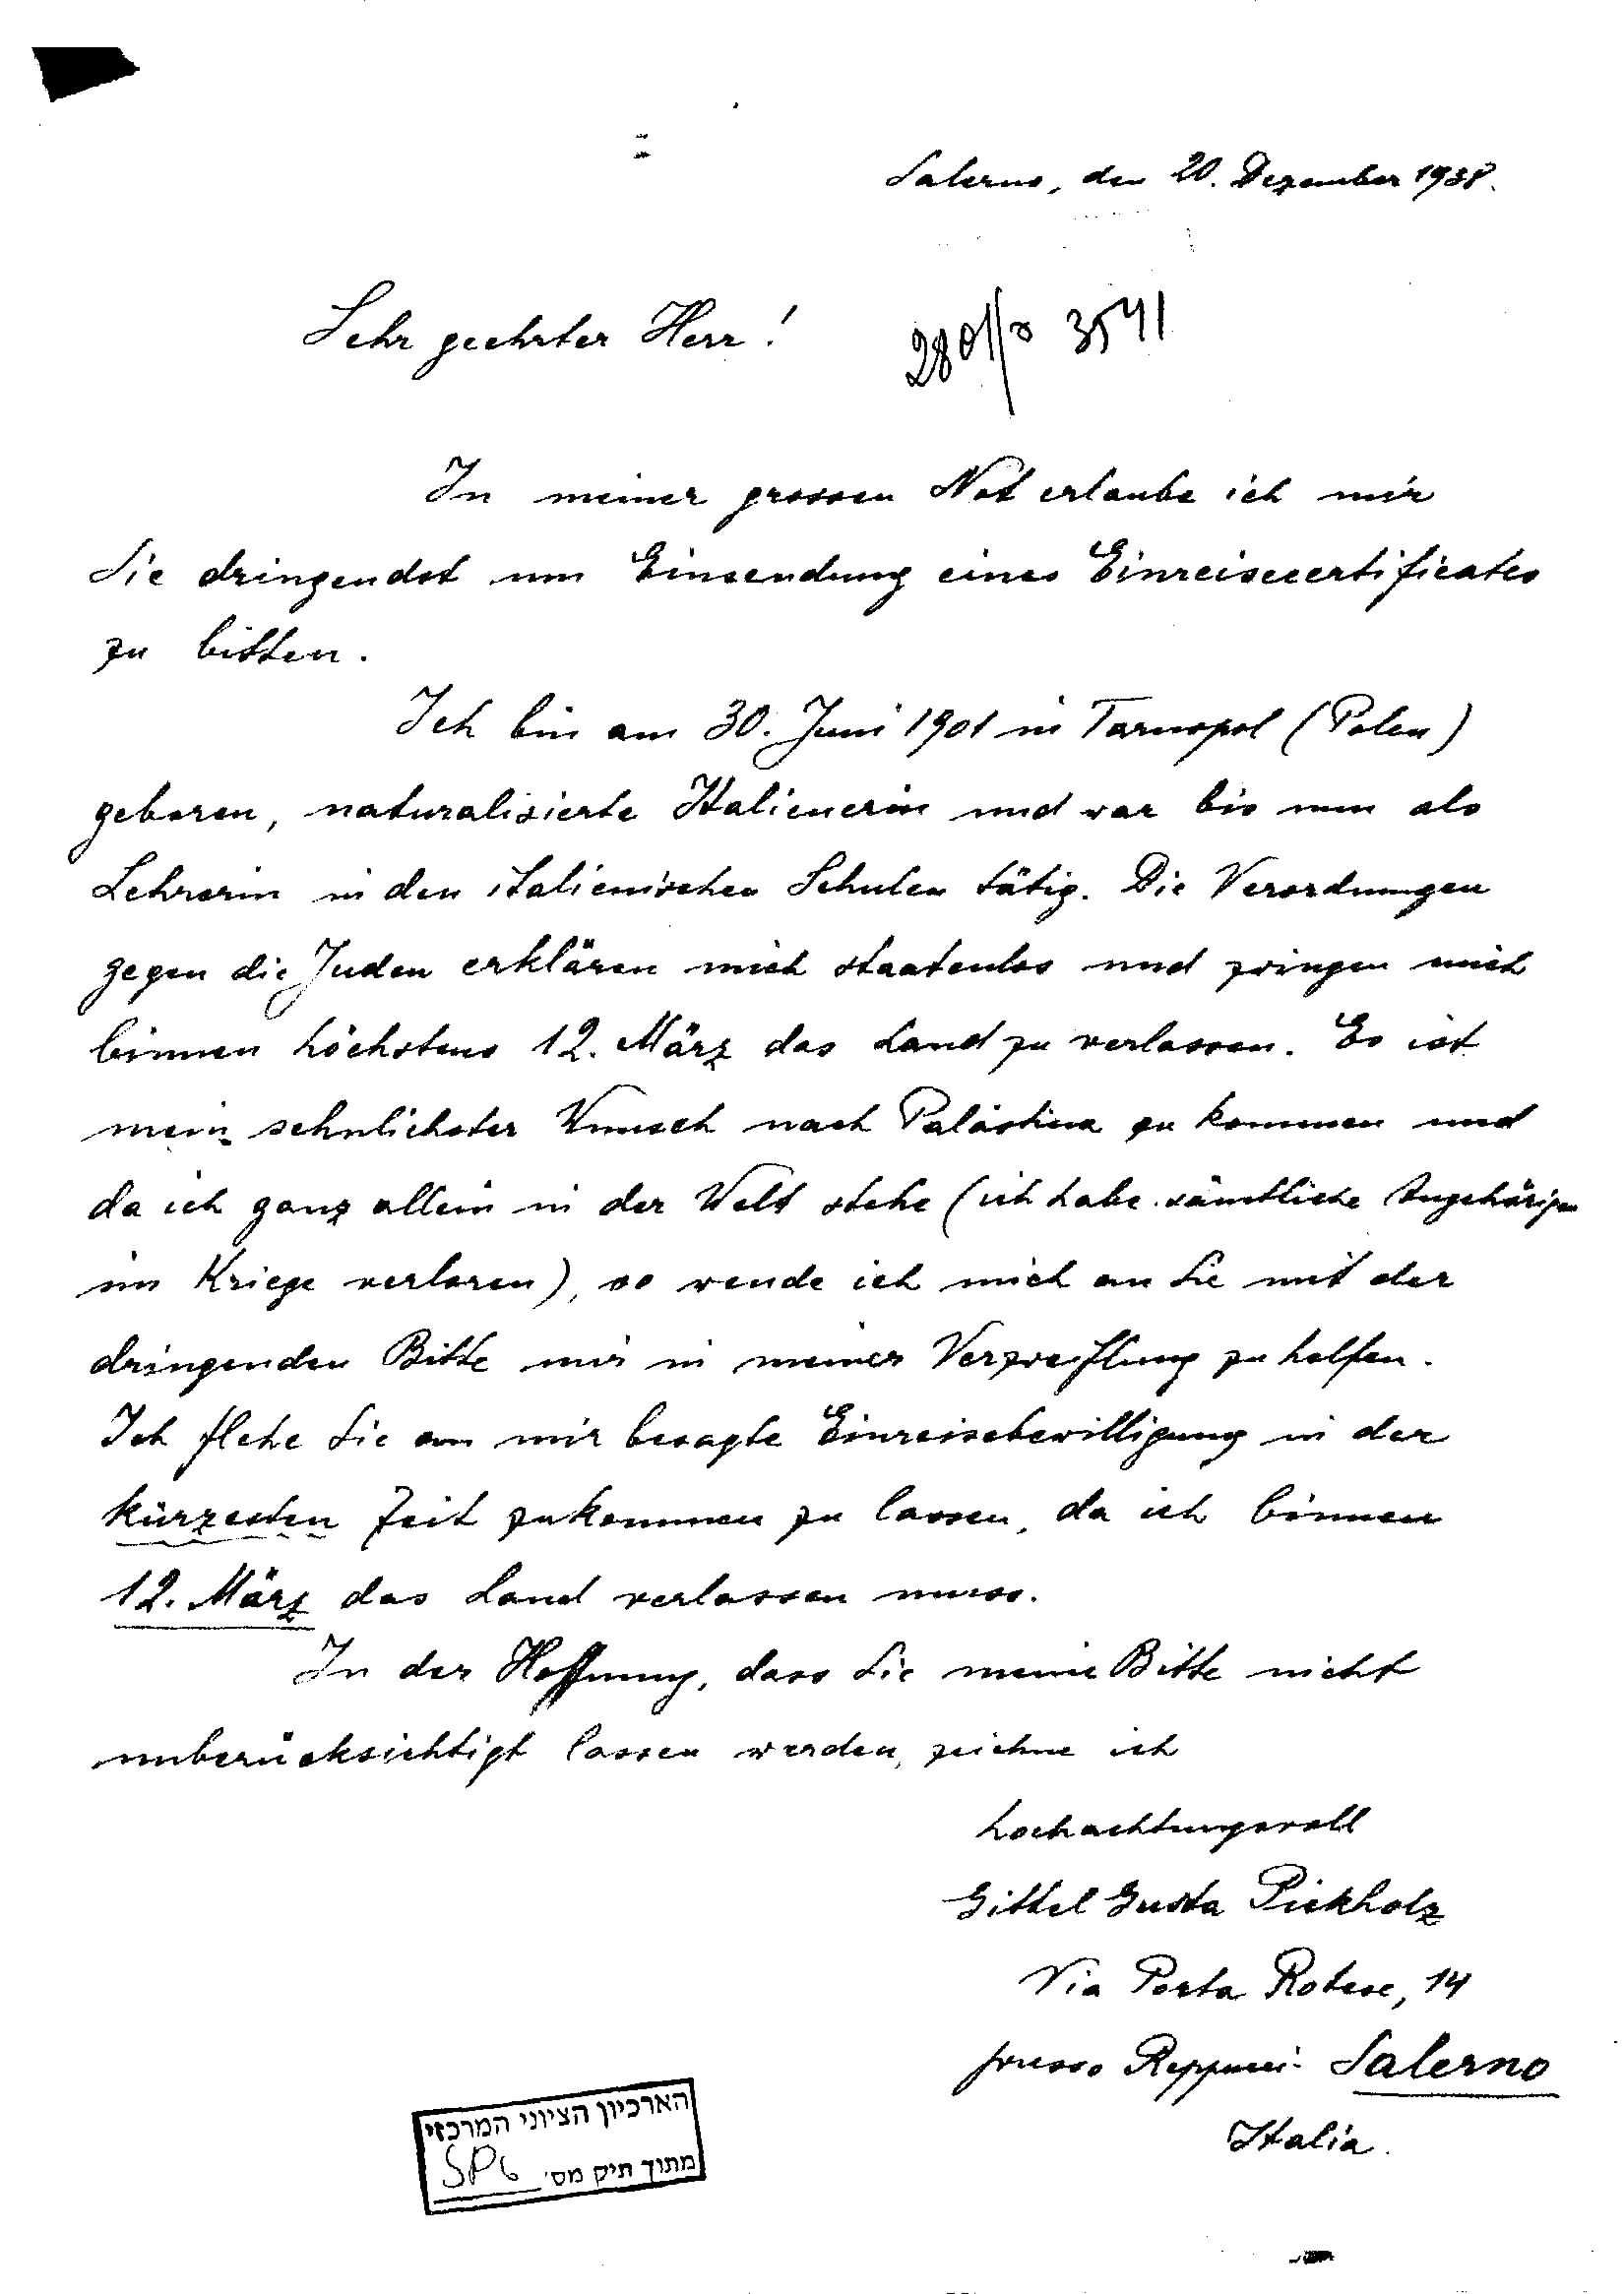 Salerno, den 20. Dezember 1938.
Sehr geehrter Herr!
3541
In meiner grossen Not erlaube ich mir
Sie dringendst um Einsendung eines Einreisecertificates
zu bitten.
Ich bin am 30. Juni 1901 in Tarnopol (Polen)
geboren, naturalisierte Italienerin und war bis nun als
Lehrerin in den italienischen Schulen tätig. Die Verordnungen
gegen die Juden erklären mich staatenlos und zwingen mich
binnen höchstens 12. März das Land zu verlassen. Es ist
mein sehnlichster Wunsch nach Palästina zu kommen und
da ich ganz allein in der Welt stehe (ich habe sämtliche Angehörigen
im Kriege verloren), so wende ich mich an Sie mit der
dringenden Bitte mir in meiner Verzweiflung zu helfen.
Ich flehe Sie an mir besagte Einreisebewilligung in der
kürzesten Zeit zukommen zu lassen, da ich binnen
12. März das Land verlassen muss.
In der Hoffnung, dass Sie meine Bitte nicht
unberücksichtigt lassen werden, zeichne ich
hochachtungsvoll
Gittel Gusta Pickholz
Via Porta Rotese, 14
presso Salerno
Italia.
הארכיון הציוני המרכזי
מתוך תיק מס' SP6